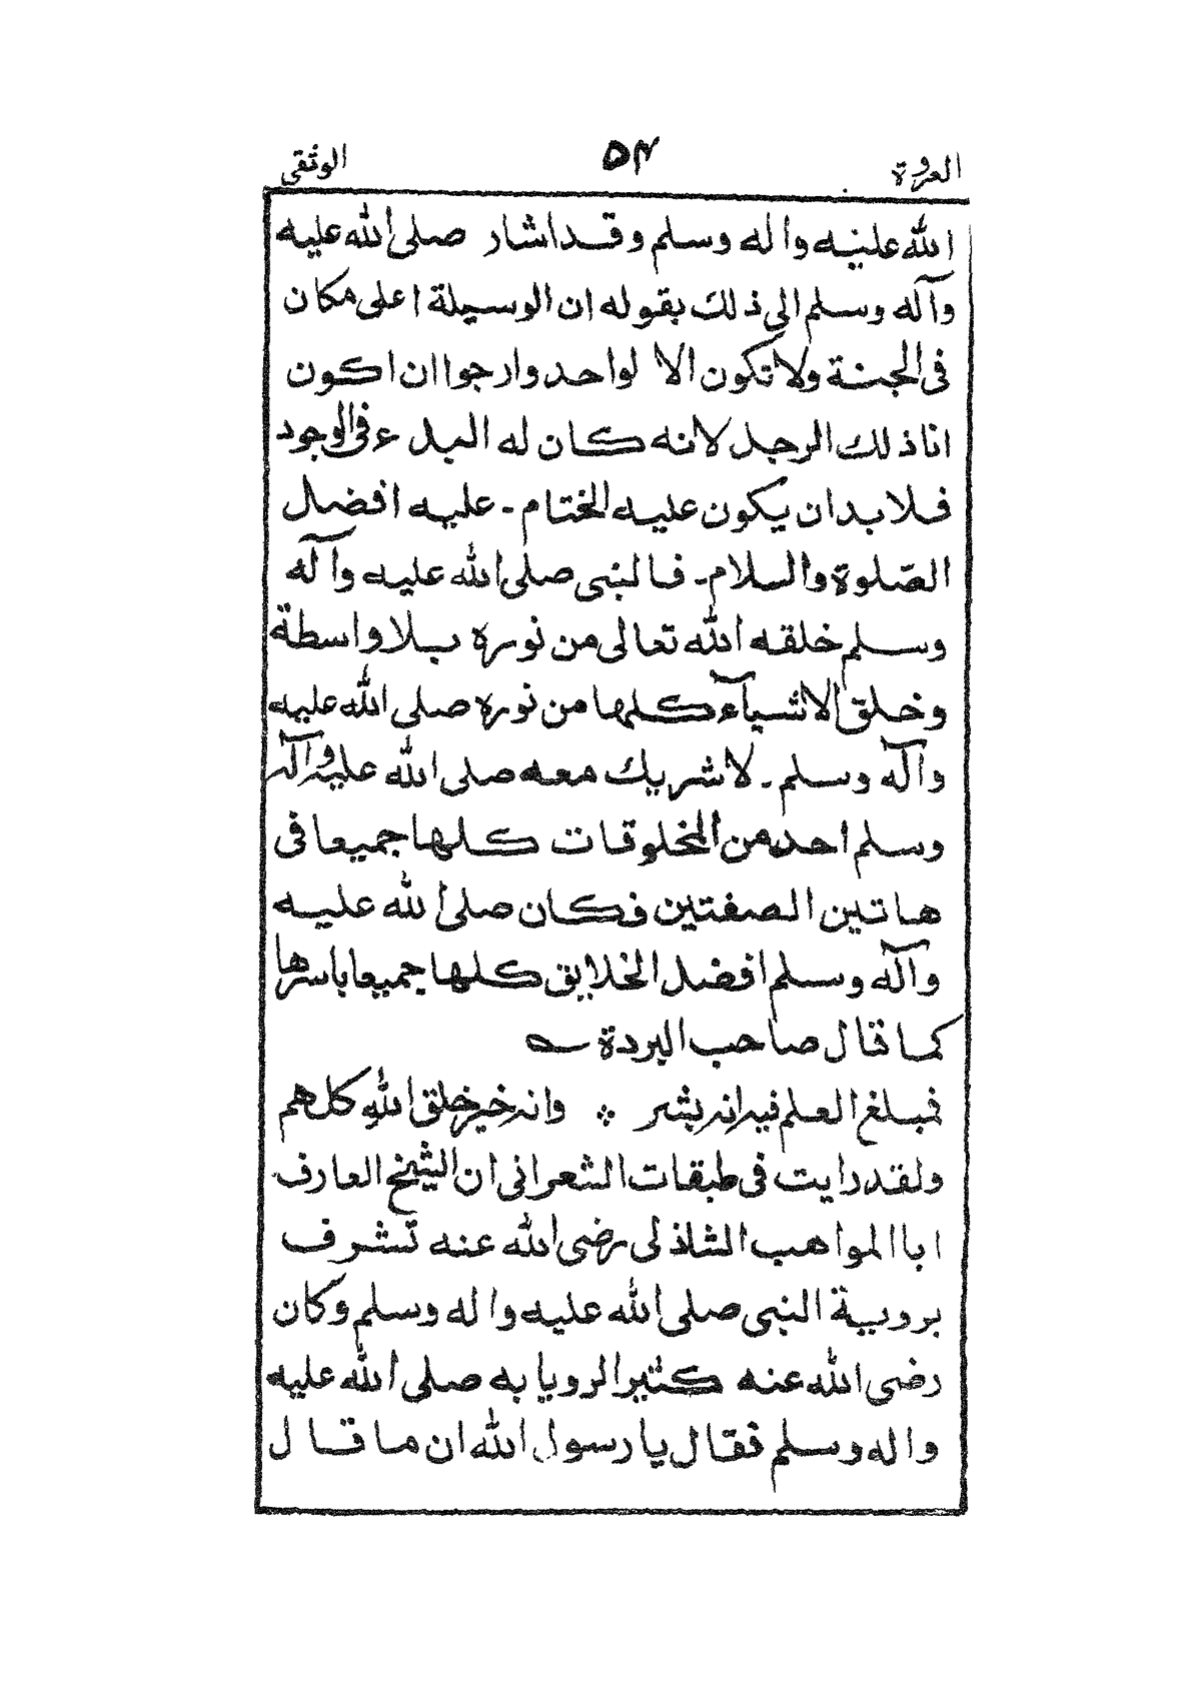 العروة ۵۴ الوثقى
الله عليه واٰله وسلم وقد اشار صلى الله عليه
وآله وسلم الى ذلك بقوله ان الوسيلة اعلى مكان
فى الجنة ولا تكون الا لواحد وارجوا ان اكون
انا ذلك الرجل لانه كان له البدء فى الوجود
فلا بد ان يكون عليه الختام - عليه افضل
الصّلوة والسلام - فالنبى صلى الله عليه وآله
وسلم خلقه الله تعالى من نوره بلا واسطة
وخلق الاشيآء كلها من نوره صلى الله عليه
وآله وسلم - لا شريك معه صلى الله عليه وآله
وسلم احد من المخلوقات كلها جميعا فى
هاتين الصفتين فكان صلى الله عليه
وآله وسلم افضل الخلايق كلها جميعا باسرها
كما قال صاحب البردة ؎
فمبلغ العلم فيه انه بشر ؞ وانه خير خلق الله كلهم
ولقد رايت فى طبقات الشعرانى ان الشيخ العارف
ابا المواهب الشاذلى رضى الله عنه تشرف
بروية النبى صلى الله عليه واله وسلم وكان
رضى الله عنه كثير الرويا به صلى الله عليه
واله وسلم فقال يا رسول الله ان ما قال